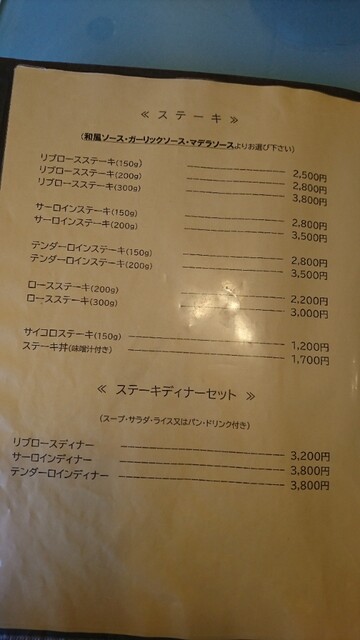 ≪ ステーキ ≫
(和風ソース・ガーリックソース・マデラソースよりお選び下さい)
リブロースステーキ(150g) 2,500円
リブロースステーキ(200g) 2,800円
リブロースステーキ(300g) 3,800円
サーロインステーキ(150g) 2,800円
サーロインステーキ(200g) 3,500円
テンダーロインステーキ(150g) 2,800円
テンダーロインステーキ(200g) 3,500円
ロースステーキ(200g) 2,200円
ロースステーキ(300g) 3,000円
サイコロステーキ(150g) 1,200円
ステーキ丼(味噌汁付き) 1,700円
≪ ステーキディナーセット ≫
(スープ・サラダ・ライス又はパン・ドリンク付き)
リブロースディナー 3,200円
サーロインディナー 3,800円
テンダーロインディナー 3,800円